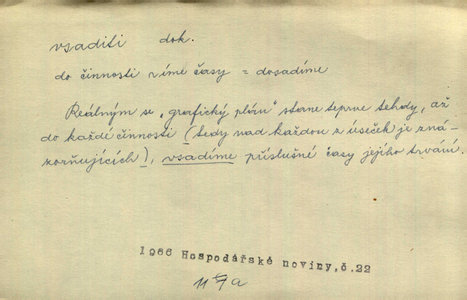 vsaditi dok.
do činnosti síme časy = dosadíme
Reálným se „grafický plán" stane teprve tehdy, až
do každé činnosti (tedy nad každou z úseček je zná-
zorňujících), vsadíme příslušné časy jejího trvání.
1966 Hospodářské noviny, č.22